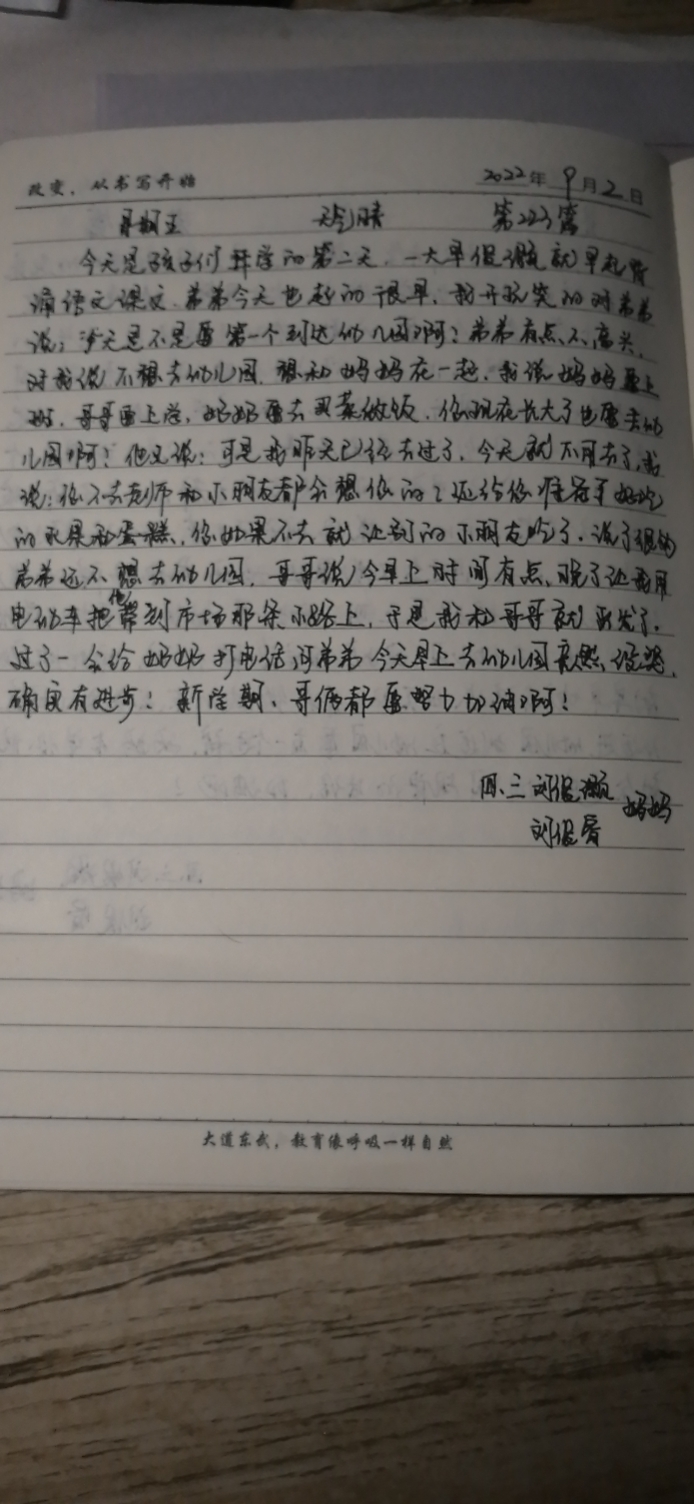 改变，从书写开始 2022年9月2日
星期五 天气晴 第223篇
今天是孩子们开学的第二天，一大早 就早起背
诵语文课文，弟弟今天也起的很早，我开玩笑的对弟弟
说：今天是不是要第一个到达幼儿园啊？弟弟有点不高兴，
对我说不想去幼儿园，想和妈妈在一起，我说妈妈要上
班，哥哥要上学，奶奶要去买菜做饭，你现在长大了也要去幼
儿园啊？他又说：可是我昨天已经去过了，今天就不用去了，我
说：你不去老师和小朋友都会想你的？还给你准备了好吃
的水果和蛋糕，你如果不去就让别的小朋友吃了，说了很多
弟弟还不想去幼儿园，哥哥说今早上时间有点晚了让我用
电动车把他带到市场那条小路上，于是我和哥哥就出发了，
过了一会给奶奶打电话问弟弟今天早上去幼儿园竟然没哭，
确实有进步！新学期，哥俩都要努力加油啊！
四、三 刘 妈妈
刘
大道东武，教育像呼吸一样自然